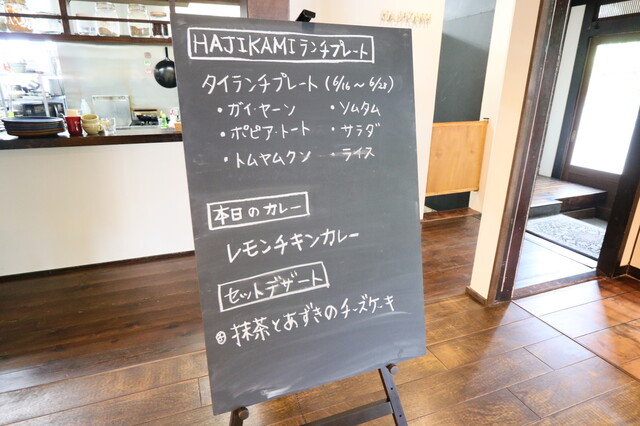 HAJIKAMIランチプレート
タイランチプレート (6/16〜6/28)
・ガイ・ヤーン ・ソムタム
・ポピア・トート ・サラダ
・トムヤムクン ・ライス
本日のカレー
レモンチキンカレー
セットデザート
抹茶とあずきのチーズケーキ